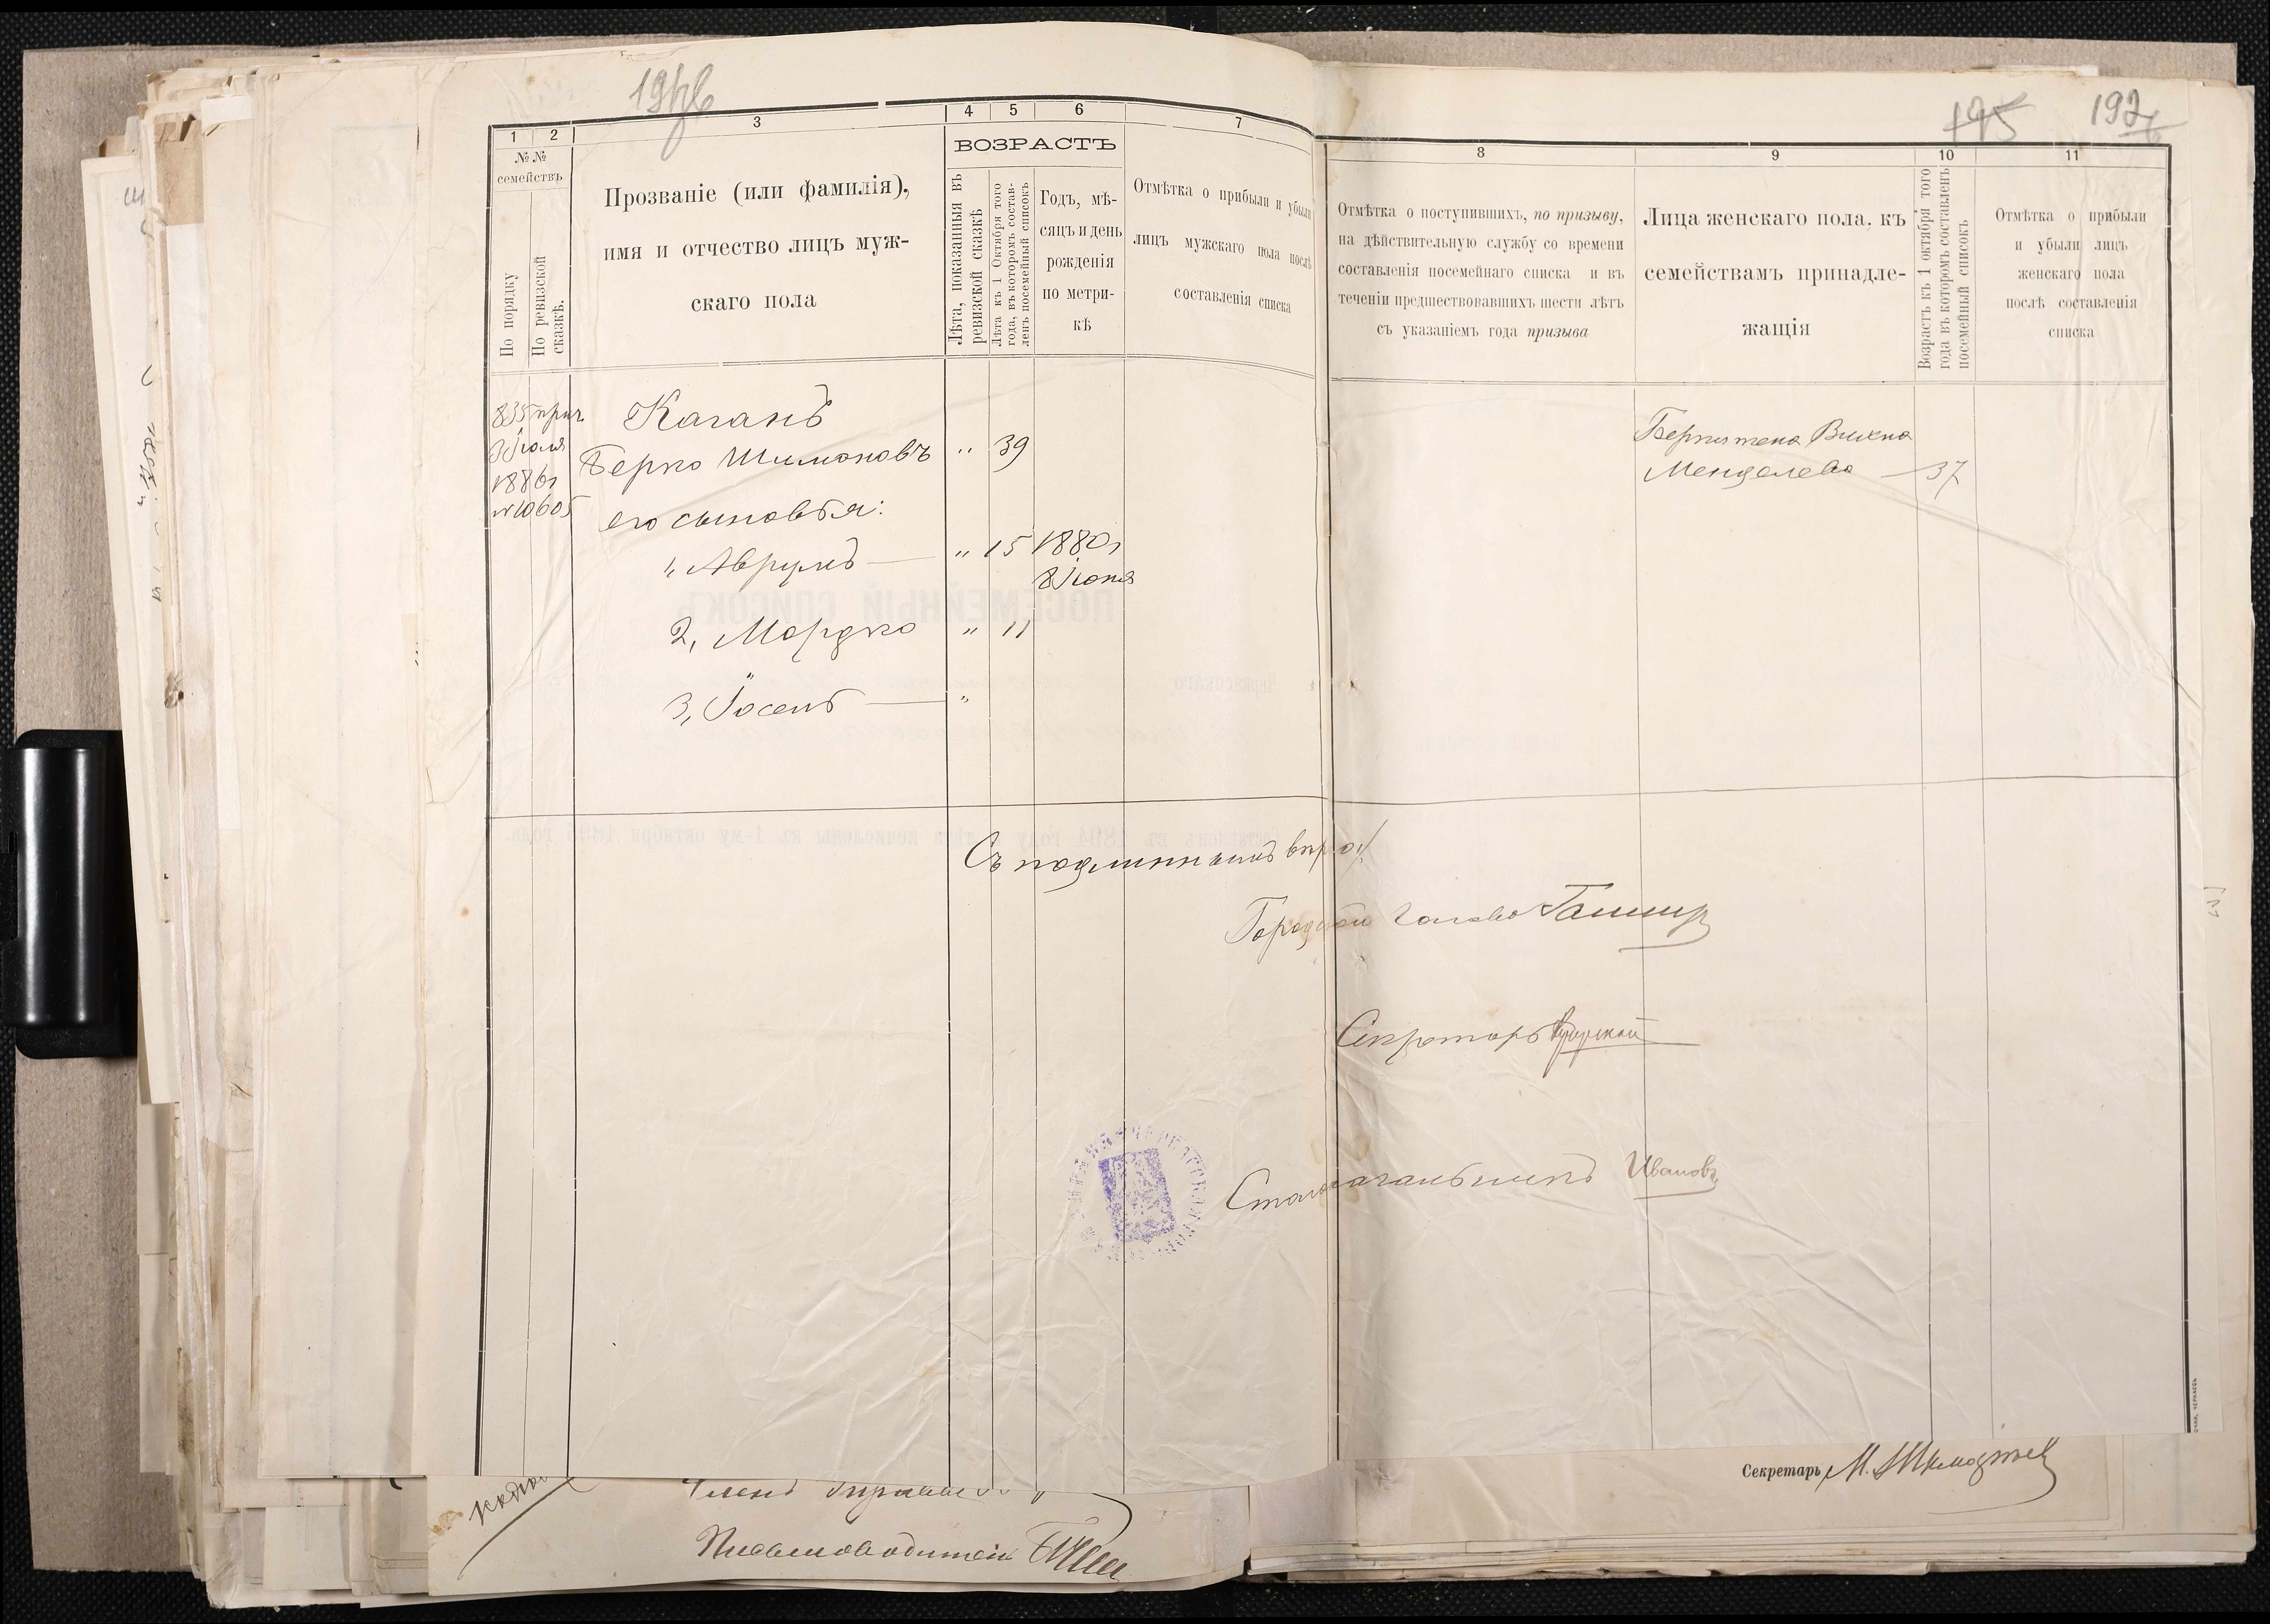 195
192
1 2 3 4 5 6 7
8 9 10 11
№№ семействъ
По порядку
По ревизской сказкѣ.
Прозваніе (или фамилія),
имя и отчество лицъ муж-
скаго пола
ВОЗРАСТЪ
Лѣта, показанныя въ
ревизской сказкѣ
Лѣта къ 1 Октября того
года, въ которомъ состав-
ленъ посемейный списокъ
Годъ, мѣ-
сяцъ и день
рожденія
по метри-
кѣ
Отмѣтка о прибыли и убыли
лицъ мужскаго пола послѣ
составленія списка
Отмѣтка о поступившихъ, по призыву,
на дѣйствительную службу со времени
составленія посемейнаго списка и въ
теченіи предшествовавшихъ шести лѣтъ
съ указаніемъ года призыва
Лица женскаго пола, къ
семействамъ принадле-
жащія
Возрастъ къ 1 октября того
года въ которомъ составленъ
посемейный списокъ
Отмѣтка о прибыли
и убыли лицъ
женскаго пола
послѣ составленія
списка
835 прич.
3 Іюля
1886г
№ 10605
Каганъ
Берко Шимоновъ " 39
его сыновья:
1, Аврумъ — " 15 1880г
8 Іюня
2, Мордко " 11
3, Іосепъ — "
Берки жена
Менделева — 37
Съ подлиннымъ вѣрно:
Городской Голова
Секретарь
Столоначальникъ Ивановъ
Секретарь
Членъ Управы
Письмоводитель